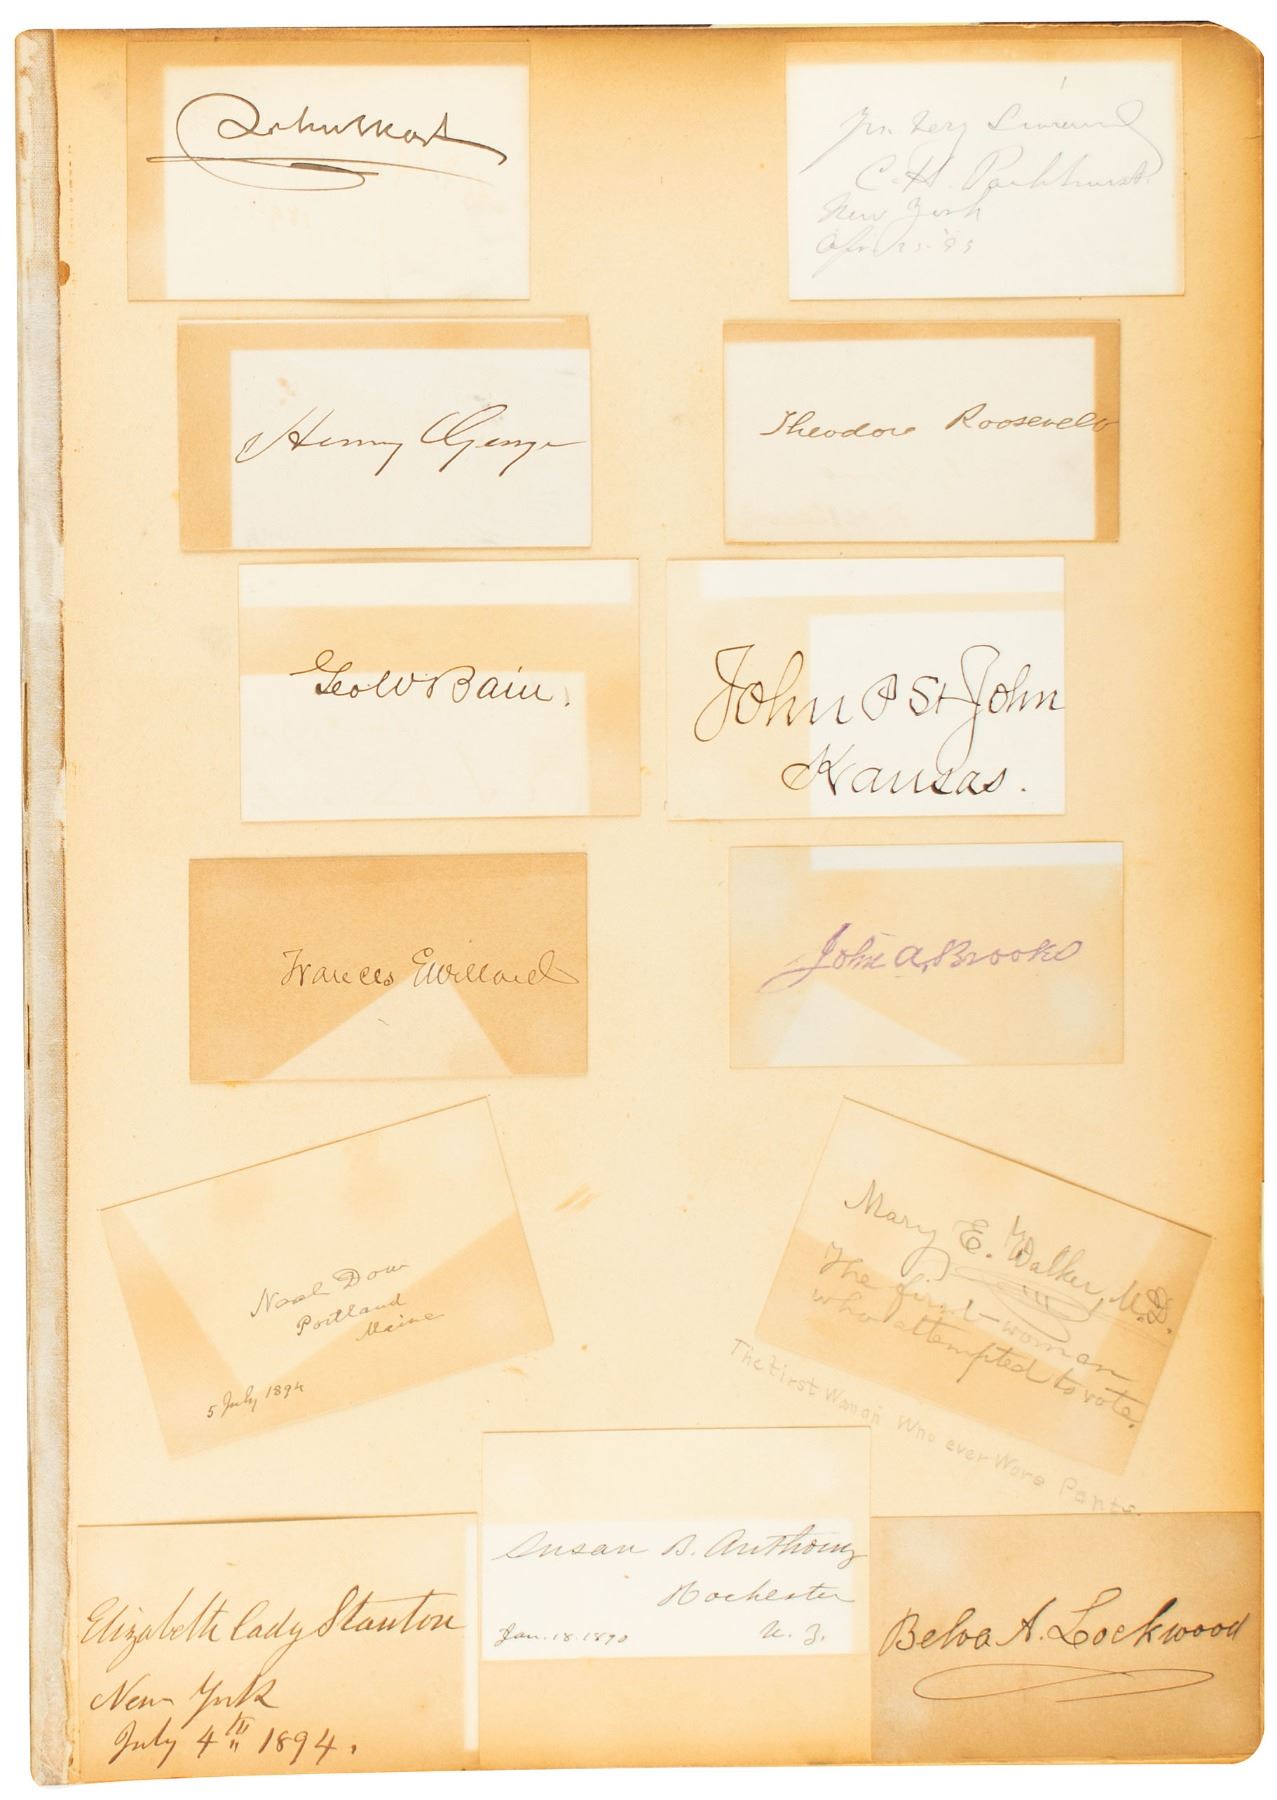 Yrs. Very Sincerely
C. H. Parkhurst.
New York
Henry George
Theodore Roosevelt
Geo W Bain.
John P St John
Kansas.
Frances E Willard
John A, Brooks
Neal Dow
Portland
Maine
5 July 1894
Mary E. Walker, M.D.
The first woman
who attempted to vote.
The First Woman Who ever Wore Pants.
Elizabeth Cady Stanton
New York
July 4th 1894.
Susan B. Anthony
Rochester
Jan. 18. 1890 N. Y.
Belva A. Lockwood